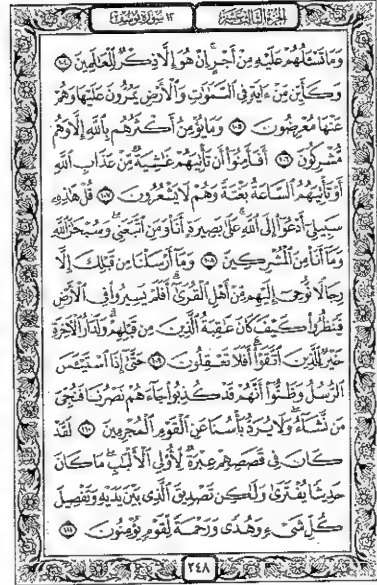 الجزء الثالث عشر ١٣ سورة يوسف ١٢
وَمَا تَسْـَٔلُهُمْ عَلَيْهِ مِنْ أَجْرٍ ۚ إِنْ هُوَ إِلَّا ذِكْرٌ لِّلْعَٰلَمِينَ ١٠٤
وَكَأَيِّن مِّنْ ءَايَةٍ فِى ٱلسَّمَٰوَٰتِ وَٱلْأَرْضِ يَمُرُّونَ عَلَيْهَا وَهُمْ
عَنْهَا مُعْرِضُونَ ١٠٥ وَمَا يُؤْمِنُ أَكْثَرُهُم بِٱللَّهِ إِلَّا وَهُم
مُّشْرِكُونَ ١٠٦ أَفَأَمِنُوٓا۟ أَن تَأْتِيَهُمْ غَٰشِيَةٌ مِّنْ عَذَابِ ٱللَّهِ
أَوْ تَأْتِيَهُمُ ٱلسَّاعَةُ بَغْتَةً وَهُمْ لَا يَشْعُرُونَ ١٠٧ قُلْ هَٰذِهِۦ
سَبِيلِىٓ أَدْعُوٓا۟ إِلَى ٱللَّهِ ۚ عَلَىٰ بَصِيرَةٍ أَنَا۠ وَمَنِ ٱتَّبَعَنِى ۖ وَسُبْحَٰنَ ٱللَّهِ
وَمَآ أَنَا۠ مِنَ ٱلْمُشْرِكِينَ ١٠٨ وَمَآ أَرْسَلْنَا مِن قَبْلِكَ إِلَّا
رِجَالًا نُّوحِىٓ إِلَيْهِم مِّنْ أَهْلِ ٱلْقُرَىٰٓ ۗ أَفَلَمْ يَسِيرُوا۟ فِى ٱلْأَرْضِ
فَيَنظُرُوا۟ كَيْفَ كَانَ عَٰقِبَةُ ٱلَّذِينَ مِن قَبْلِهِمْ ۗ وَلَدَارُ ٱلْـَٔاخِرَةِ
خَيْرٌ لِّلَّذِينَ ٱتَّقَوْا۟ ۗ أَفَلَا تَعْقِلُونَ ١٠٩ حَتَّىٰٓ إِذَا ٱسْتَيْـَٔسَ
ٱلرُّسُلُ وَظَنُّوٓا۟ أَنَّهُمْ قَدْ كُذِبُوا۟ جَآءَهُمْ نَصْرُنَا فَنُجِّىَ
مَن نَّشَآءُ ۖ وَلَا يُرَدُّ بَأْسُنَا عَنِ ٱلْقَوْمِ ٱلْمُجْرِمِينَ ١١٠ لَقَدْ
كَانَ فِى قَصَصِهِمْ عِبْرَةٌ لِّأُو۟لِى ٱلْأَلْبَٰبِ ۗ مَا كَانَ
حَدِيثًا يُفْتَرَىٰ وَلَٰكِن تَصْدِيقَ ٱلَّذِى بَيْنَ يَدَيْهِ وَتَفْصِيلَ
كُلِّ شَىْءٍ وَهُدًى وَرَحْمَةً لِّقَوْمٍ يُؤْمِنُونَ ١١١
٢٤٨